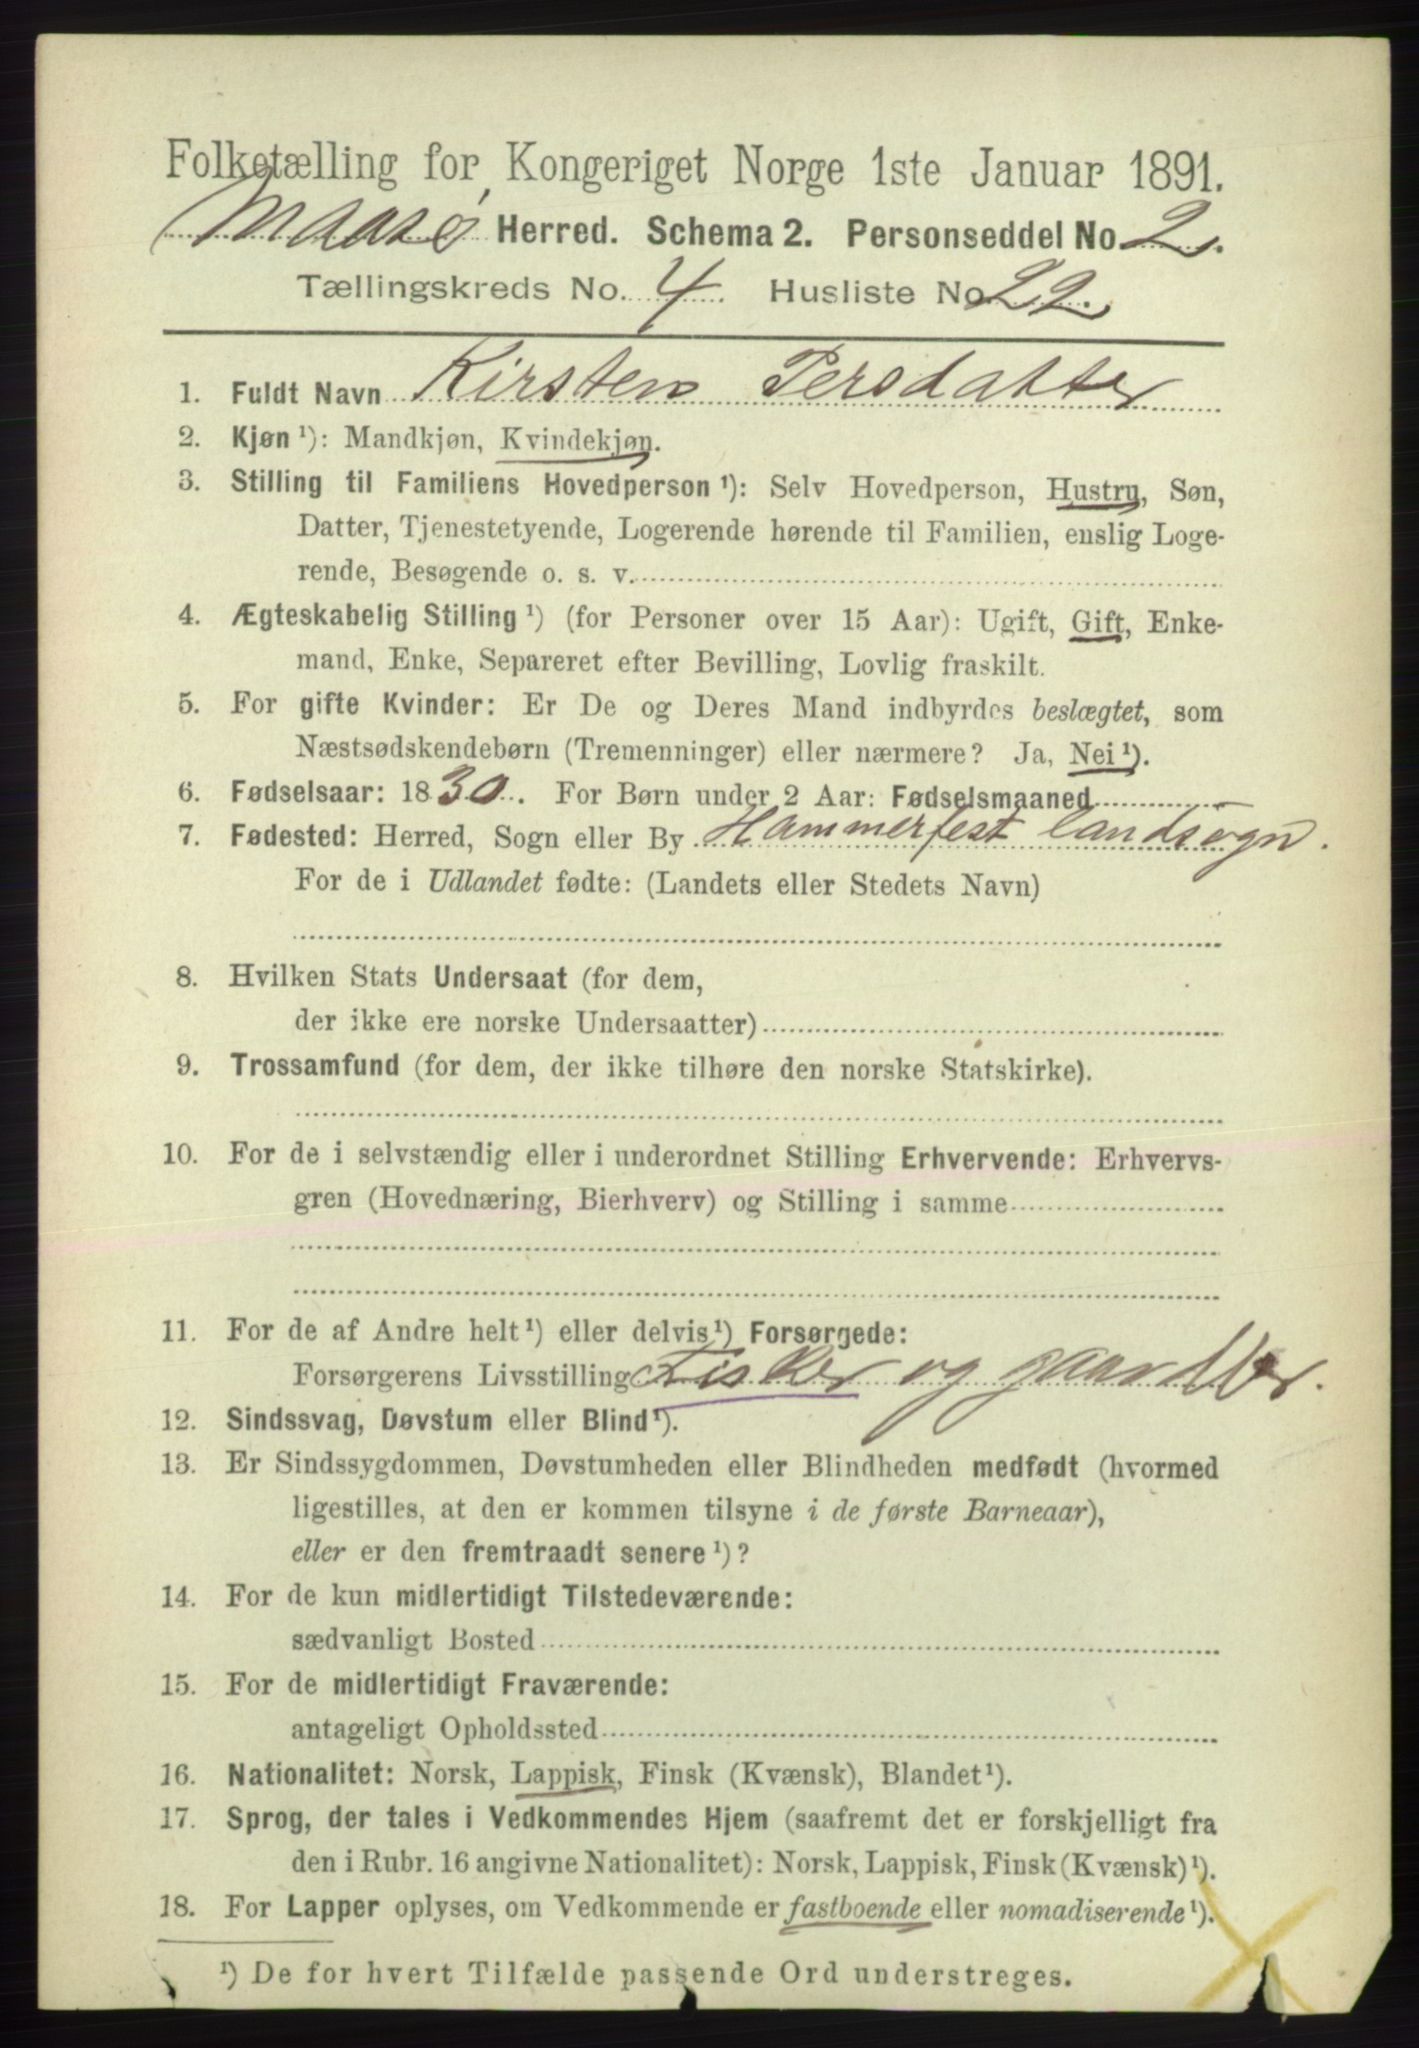 Folketælling for Kongeriget Norge 1ste Januar 1891.
Maasø Herred. Schema 2. Personseddel No. 2.
Tællingskreds No. 4. Husliste No. 22.
1. Fuldt Navn Kirsten Persdatter
2. Kjøn ¹): Mandkjøn, Kvindekjøn.
3. Stilling til Familiens Hovedperson ¹): Selv Hovedperson, Hustru, Søn,
Datter, Tjenestetyende, Logerende hørende til Familien, enslig Loge-
rende, Besøgende o. s. v.
4. Ægteskabelig Stilling ¹) (for Personer over 15 Aar): Ugift, Gift, Enke-
mand, Enke, Separeret efter Bevilling, Lovlig fraskilt.
5. For gifte Kvinder: Er De og Deres Mand indbyrdes beslægtet, som
Næstsødskendebørn (Tremenninger) eller nærmere? Ja, Nei ¹).
6. Fødselsaar: 1830. For Børn under 2 Aar: Fødselsmaaned
7. Fødested: Herred, Sogn eller By Hammerfest landsogn.
For de i Udlandet fødte: (Landets eller Stedets Navn)
8. Hvilken Stats Undersaat (for dem,
der ikke ere norske Undersaatter)
9. Trossamfund (for dem, der ikke tilhøre den norske Statskirke).
10. For de i selvstændig eller i underordnet Stilling Erhvervende: Erhvervs-
gren (Hovednæring, Bierhverv) og Stilling i samme
11. For de af Andre helt ¹) eller delvis ¹) Forsørgede:
Forsørgerens Livsstilling Fisker og gaardbr.
12. Sindssvag, Døvstum eller Blind ¹).
13. Er Sindssygdommen, Døvstumheden eller Blindheden medfødt (hvormed
ligestilles, at den er kommen tilsyne i de første Barneaar),
eller er den fremtraadt senere ¹)?
14. For de kun midlertidigt Tilstedeværende:
sædvanligt Bosted
15. For de midlertidigt Fraværende:
antageligt Opholdssted
16. Nationalitet: Norsk, Lappisk, Finsk (Kvænsk), Blandet ¹).
17. Sprog, der tales i Vedkommendes Hjem (saafremt det er forskjelligt fra
den i Rubr. 16 angivne Nationalitet): Norsk, Lappisk, Finsk (Kvænsk) ¹).
18. For Lapper oplyses, om Vedkommende er fastboende eller nomadiserende ¹).
¹) De for hvert Tilfælde passende Ord understreges.